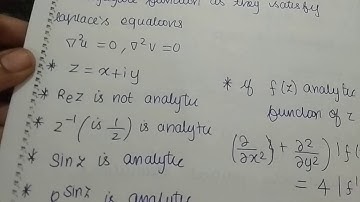 function as they satisfy
Laplace's equations
∇²u = 0, ∇²v = 0
* z = x + iy
* Re z is not analytic
* z⁻¹ (is 1/2) is analytic
* Sin z is analytic
sin z is analytic
* if f(z) analytic
function of z
(∂/∂x² + ∂²/∂y²) |f(
= 4 |f'